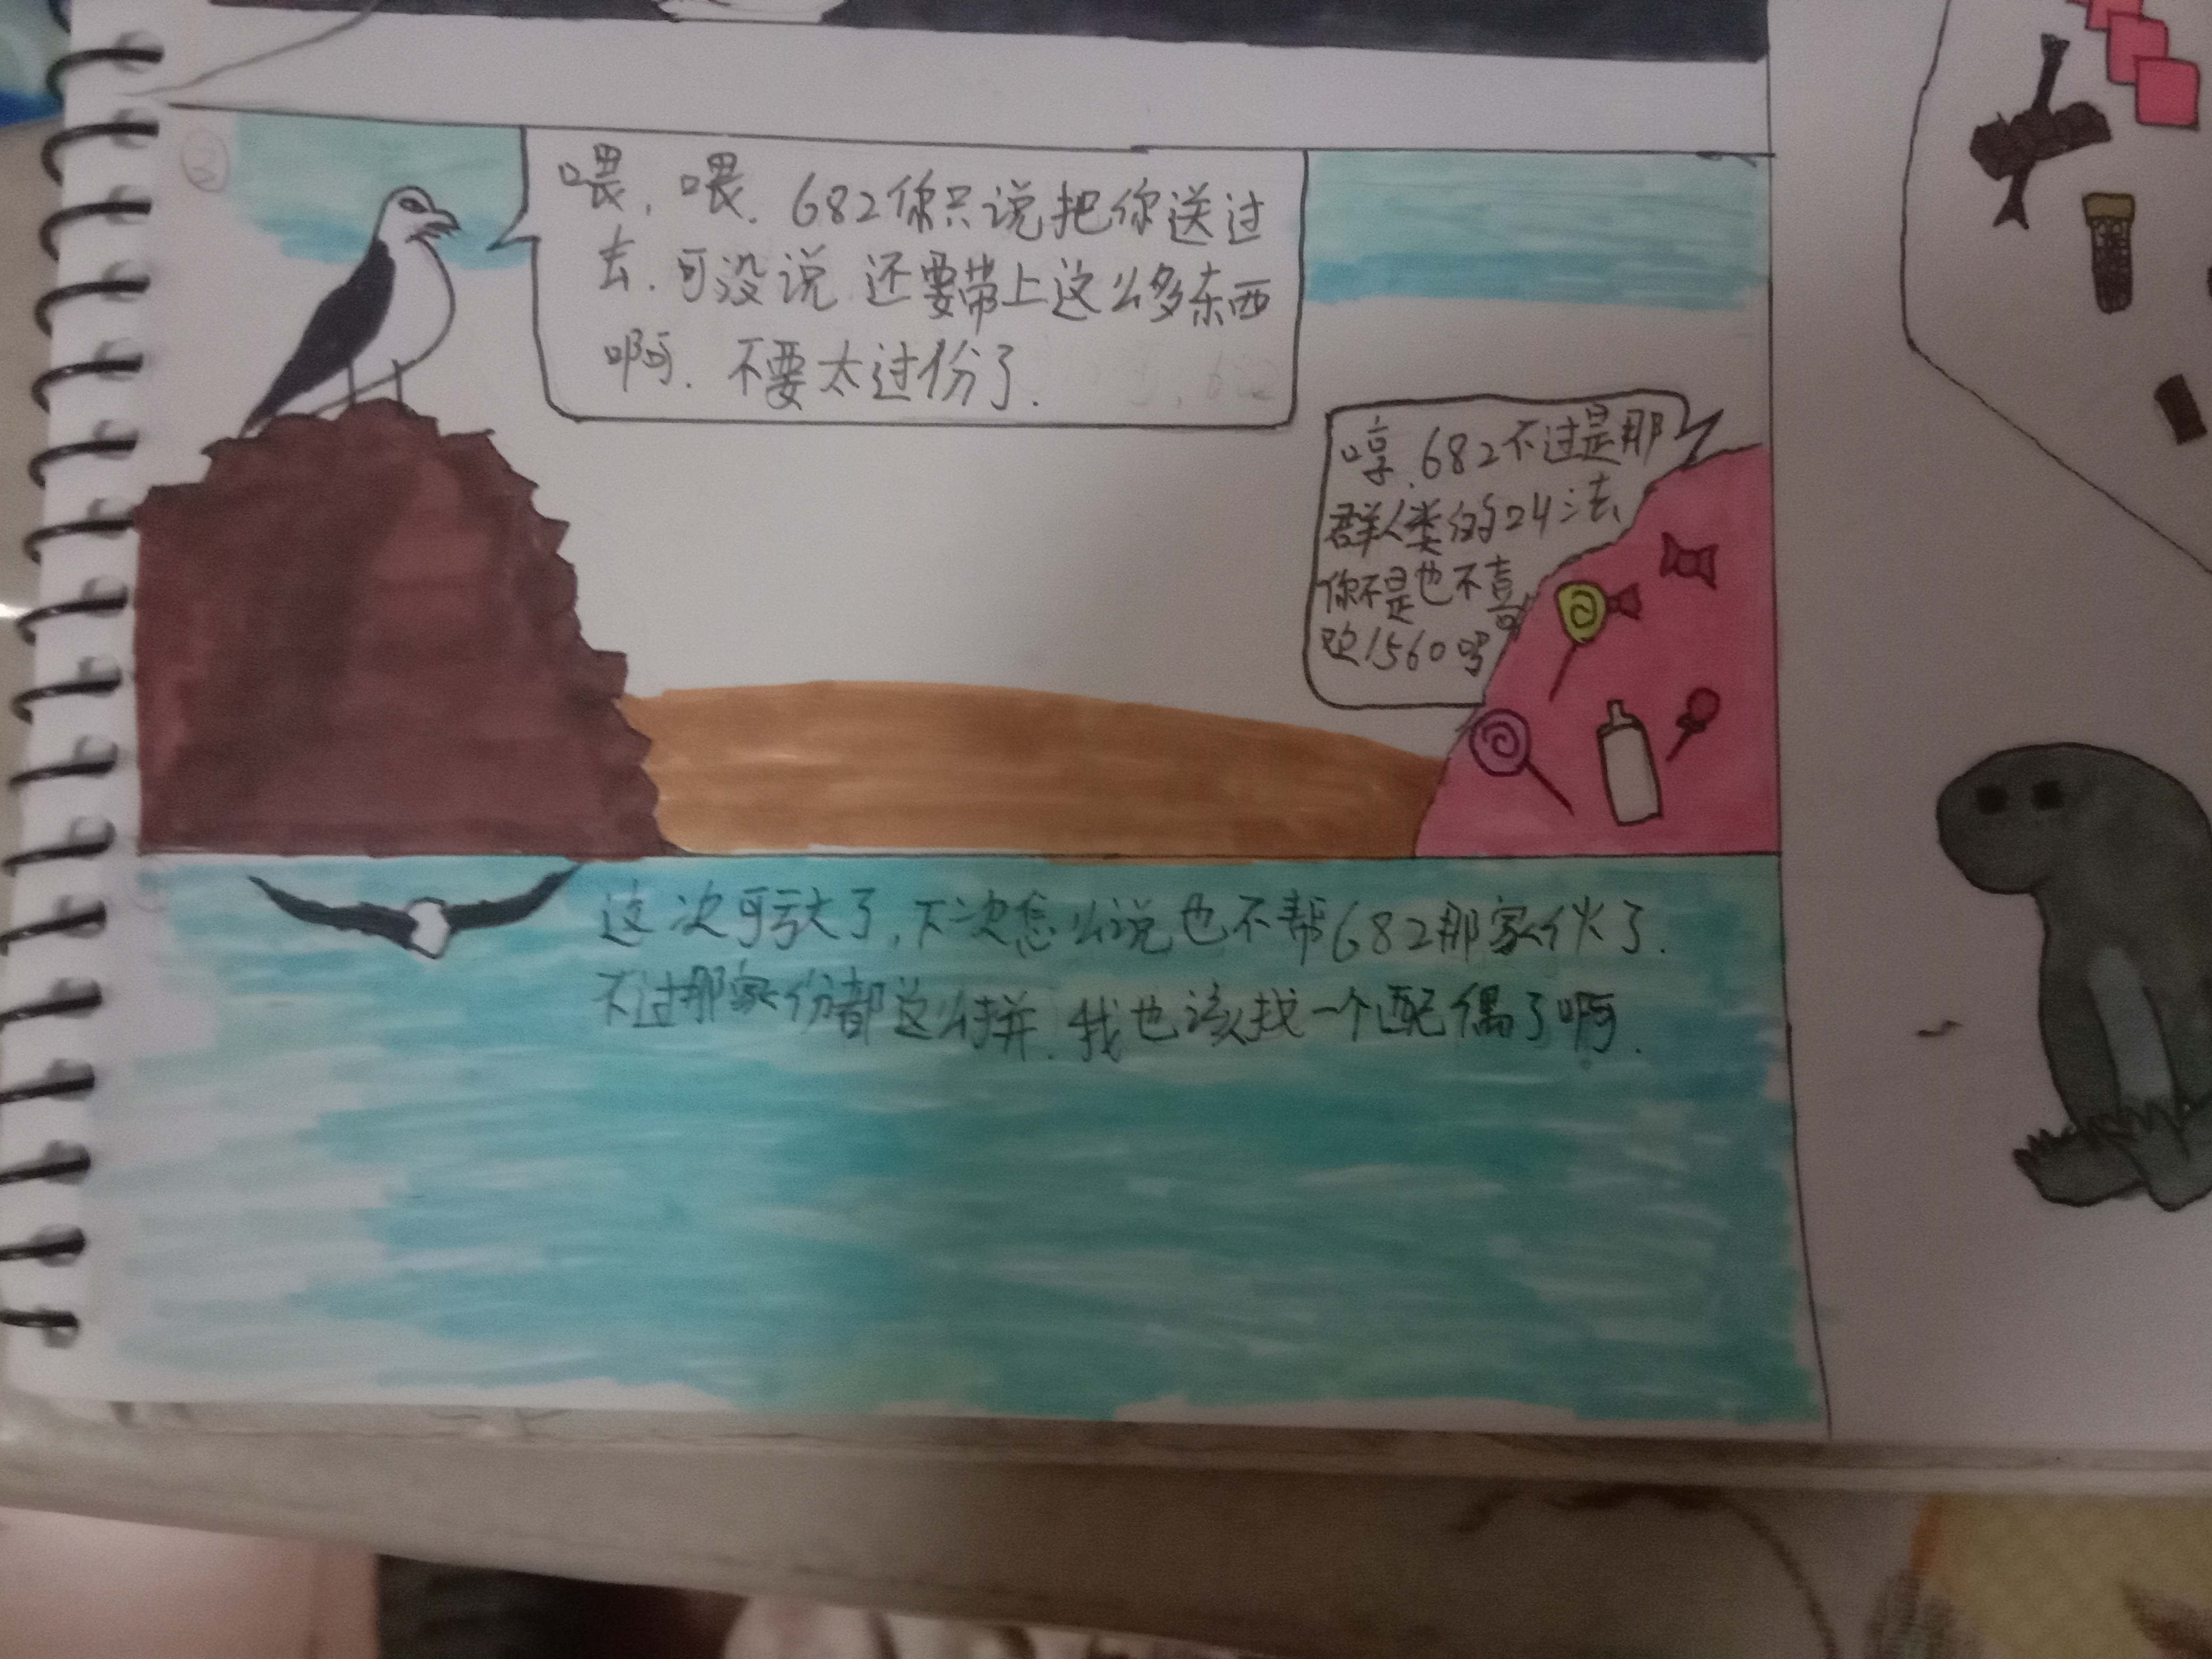 ②
喂，喂．682你只说把你送过
去．可没说还要带上这么多东西
啊．不要太过份了．
哼．682不过是那
群人类的24法
你不是也不喜
欢1560吗
这次可亏大了，下次怎么说也不帮682那家伙了．
不过那家份都这么拼．我也该找一个配偶了啊．